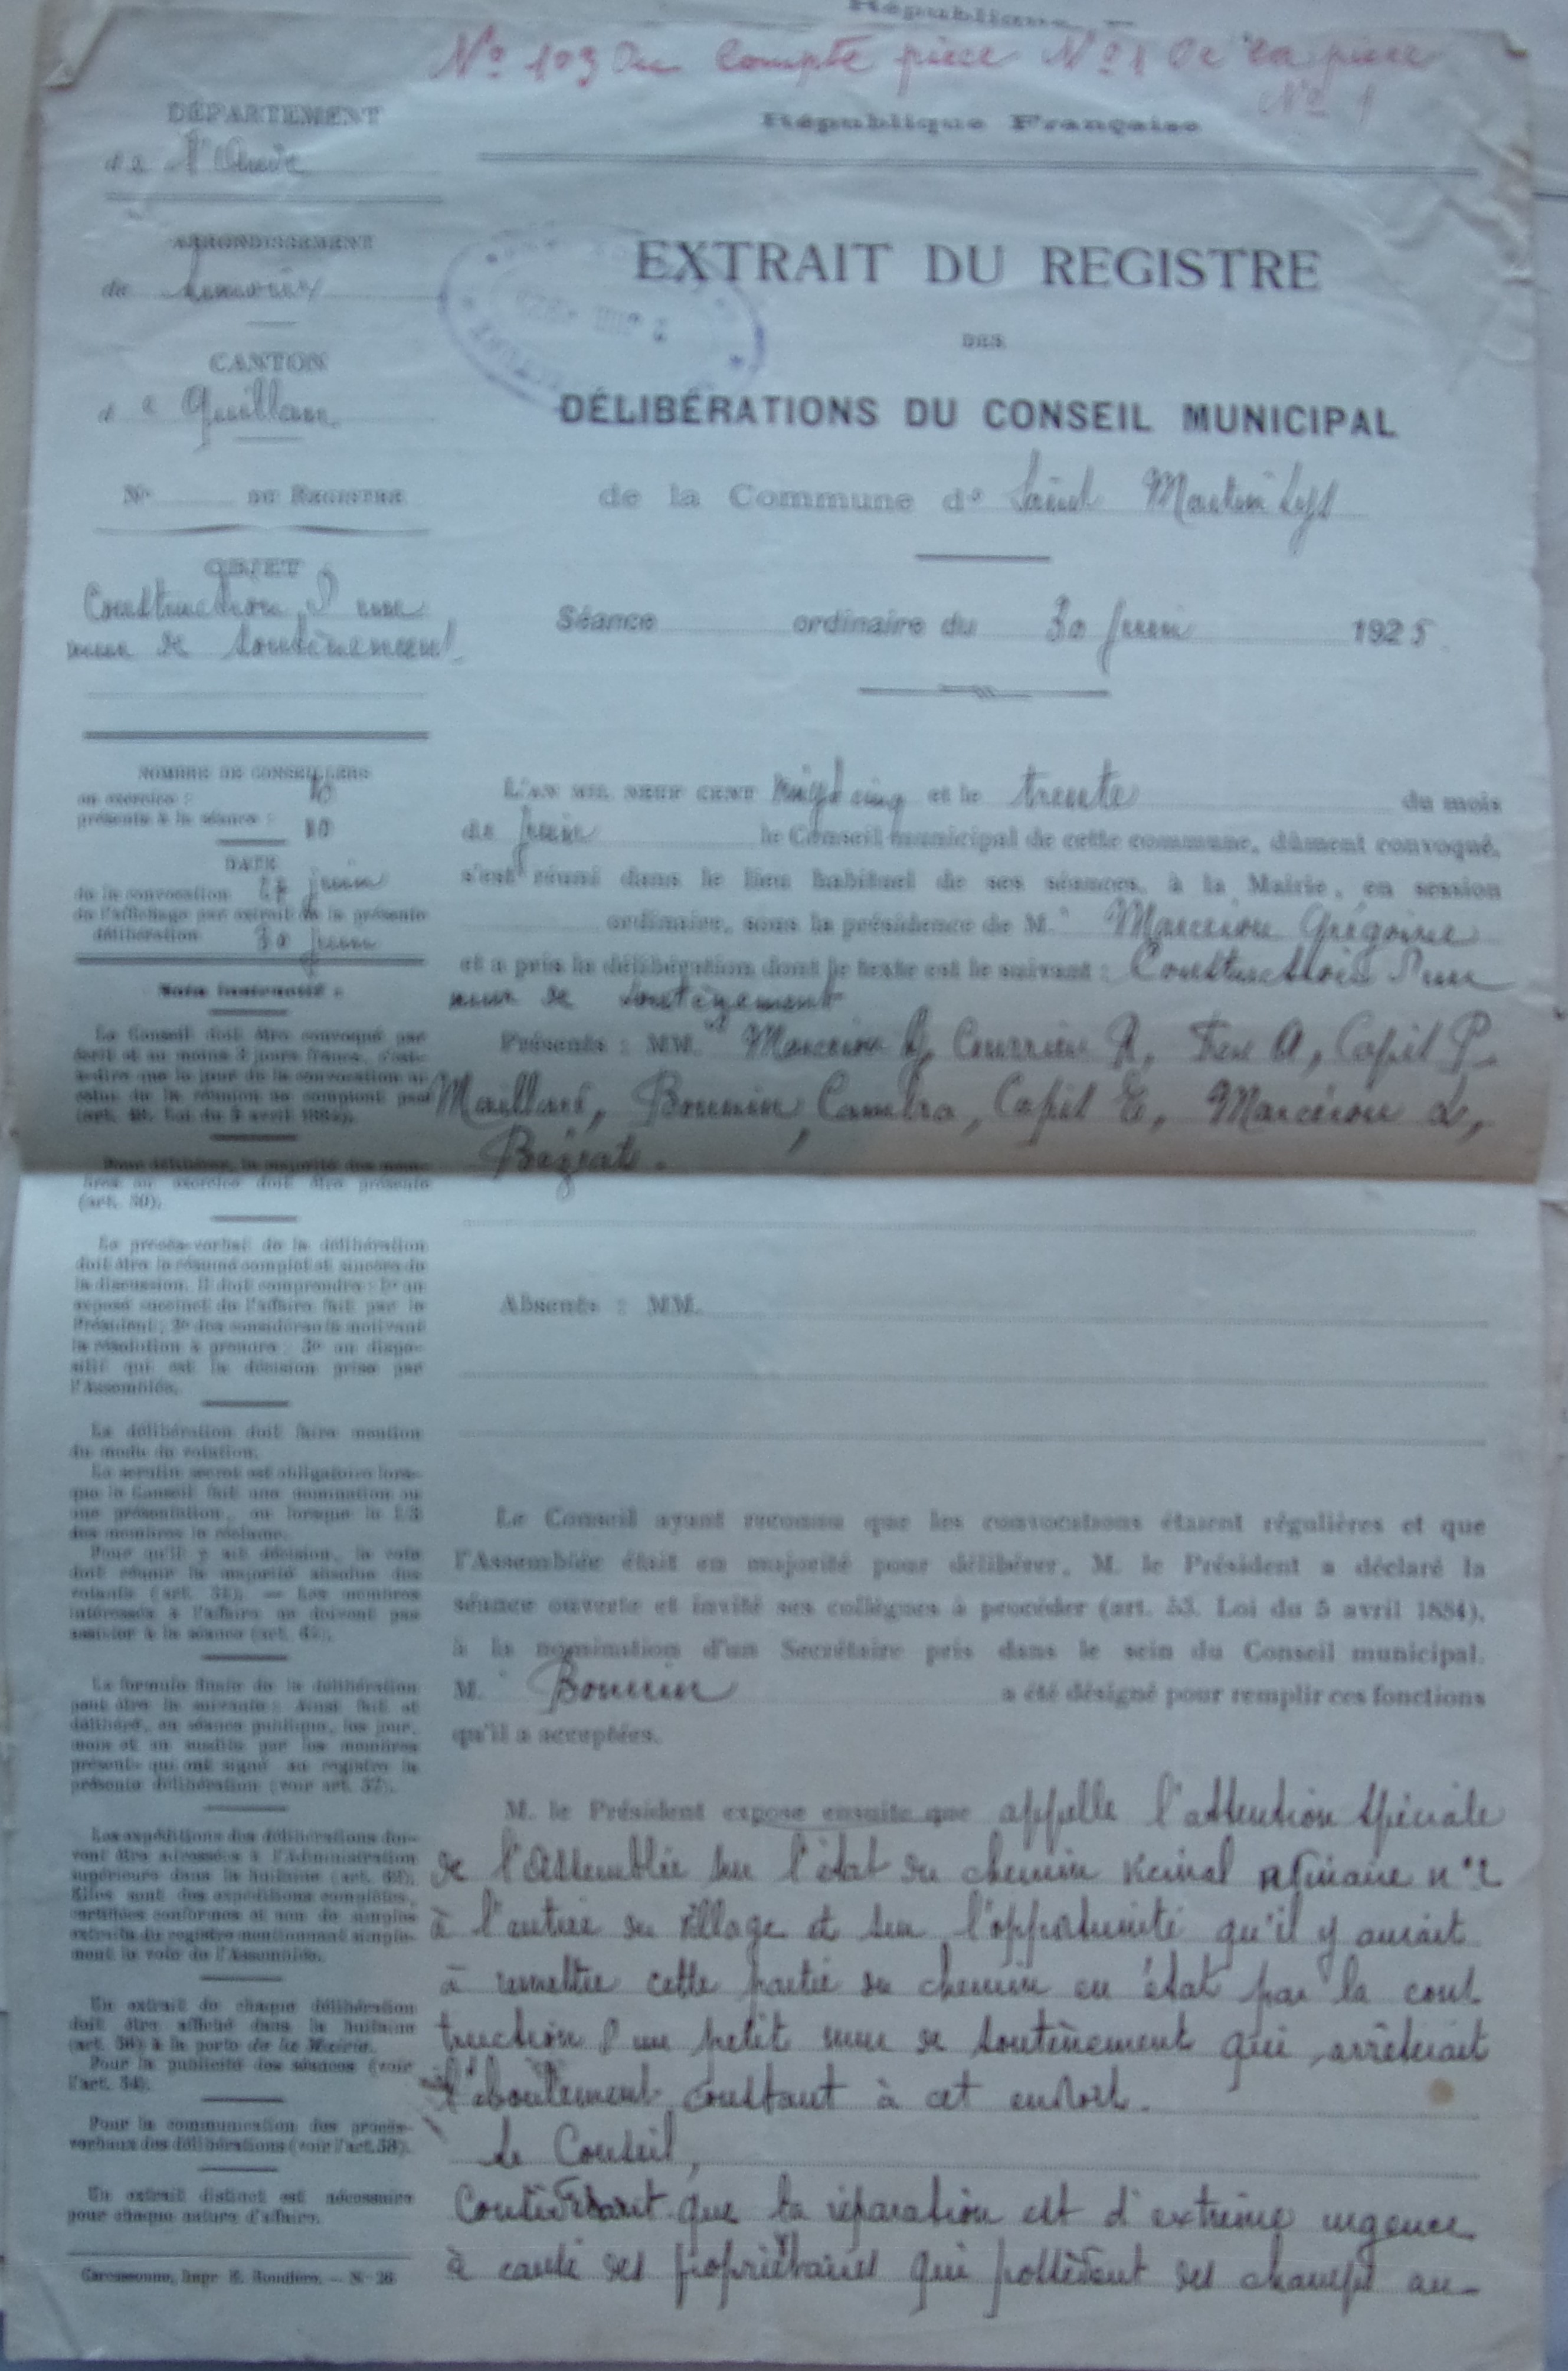 République
N° 103 Du Compte pièce N° 1 De la pièce
N° 1
DÉPARTEMENT
de l'Aude
ARRONDISSEMENT
de Limoux
CANTON
de Quillan
N° DU REGISTRE
OBJET
Construction d'un
mur de soutènement.
NOMBRE DE CONSEILLERS
en exercice : 10
présents à la séance : 10
DATE
de la convocation 27 juin
de l'affichage par extrait de la présente
délibération 30 juin
Nota instructif :
Le Conseil doit être convoqué par
écrit et au moins 3 jours francs, c'est-
à-dire que le jour de la convocation ni
celui de la réunion ne comptent pas
(art. 48. Loi du 5 avril 1884).
Pour délibérer, la majorité des mem-
bres en exercice doit être présente
(art. 50).
Le procès-verbal de la délibération
doit être le résumé complet et sincère de
la discussion. Il doit comprendre : 1° un
exposé succinct de l'affaire fait par le
Président ; 2° des considérants motivant
la résolution à prendre ; 3° un dispo-
sitif qui est la décision prise par
l'Assemblée.
La délibération doit faire mention
du mode de votation.
Le scrutin secret est obligatoire lors-
que le Conseil fait une nomination ou
une présentation, ou lorsque le 1/3
des membres le réclame.
Pour qu'il y ait décision, le vote
doit réunir la majorité absolue des
votants (art. 51). — Les membres
intéressés à l'affaire ne doivent pas
assister à la séance (art. 64).
La formule finale de la délibération
peut être la suivante : Ainsi fait et
délibéré, en séance publique, les jour,
mois et an susdits par les membres
présents qui ont signé au registre la
présente délibération (voir art. 57).
Les expéditions des délibérations doi-
vent être adressées à l'Administration
supérieure dans la huitaine (art. 62).
Elles sont des expéditions complètes,
certifiées conformes et non de simples
extraits du registre mentionnant simple-
ment le vote de l'Assemblée.
Un extrait de chaque délibération
doit être affiché dans la huitaine
(art. 56) à la porte de la Mairie.
Pour la publicité des séances (voir
l'art. 54).
Pour la communication des procès-
verbaux des délibérations (voir l'art. 58).
Un extrait distinct est nécessaire
pour chaque nature d'affaire.
Carcassonne, Impr. E. Roudière. — N° 26
République Française
EXTRAIT DU REGISTRE
DES
DÉLIBÉRATIONS DU CONSEIL MUNICIPAL
de la Commune de Saint Martin Lys
Séance ordinaire du 30 Juin 1925
L'AN MIL NEUF CENT vingt cinq et le trente du mois
de juin le Conseil municipal de cette commune, dûment convoqué,
s'est réuni dans le lieu habituel de ses séances, à la Mairie, en session
ordinaire, sous la présidence de M. Marcerou Grégoire
et a pris la délibération dont le texte est le suivant : Construction d'un
mur de soutènement
Présents : MM. Marcerou G, Courrieu A, Feu A, Capel P.
Maillard, Bonnin, Cambra, Capel E, Marcerou L,
Bézéat.
Absents : MM.
Le Conseil ayant reconnu que les convocations étaient régulières et que
l'Assemblée était en majorité pour délibérer, M. le Président a déclaré la
séance ouverte et invité ses collègues à procéder (art. 53. Loi du 5 avril 1884),
à la nomination d'un Secrétaire pris dans le sein du Conseil municipal.
M. Bonnin a été désigné pour remplir ces fonctions
qu'il a acceptées.
M. le Président expose ensuite que appelle l'attention spéciale
de l'Assemblée sur l'état du chemin vicinal ordinaire n° 2
à l'entrée du village et sur l'opportunité qu'il y aurait
à remettre cette partie du chemin en état par la cons
truction d'un petit mur de soutènement qui arrêterait
l'éboulement constant à cet endroit.
Le Conseil,
Considérant que la réparation est d'extrême urgence
à cause des propriétaires qui possèdent des champs au-